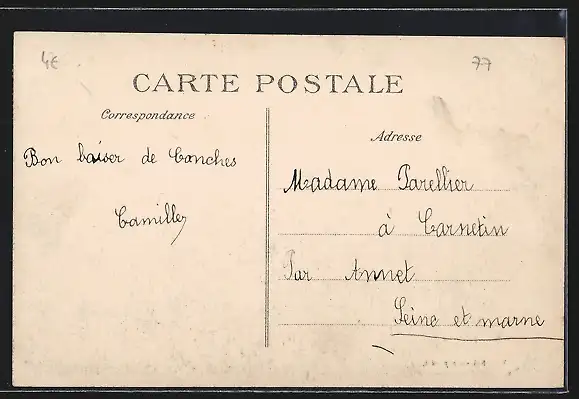 4€
77
CARTE POSTALE
Correspondance
Bon baiser de Conches
Camille
Adresse
Madame Parellier
à Carnetin
Par Annet
Seine et marne